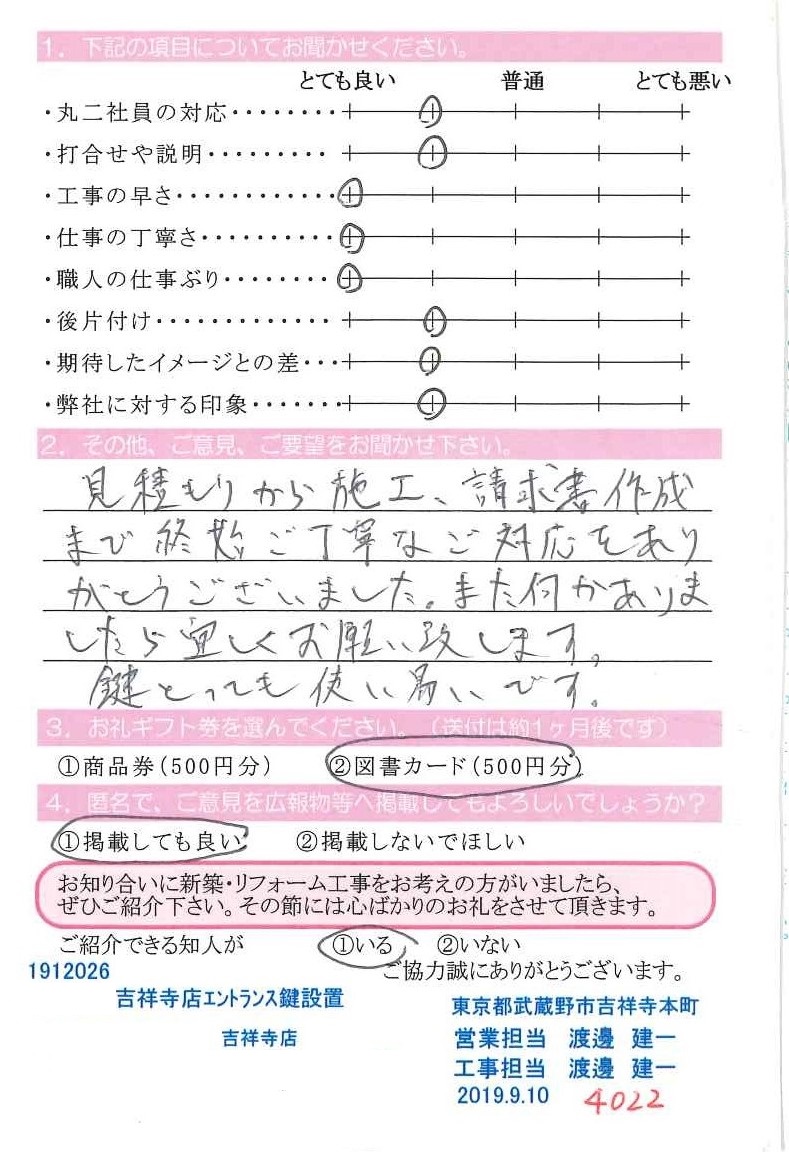 1. 下記の項目についてお聞かせください。
とても良い 普通 とても悪い
・丸二社員の対応・・・・・・・・
・打合せや説明・・・・・・・・・
・工事の早さ・・・・・・・・・・・・
・仕事の丁寧さ・・・・・・・・・・
・職人の仕事ぶり・・・・・・・・
・後片付け・・・・・・・・・・・・・
・期待したイメージとの差・・・
・弊社に対する印象・・・・・・・
2. その他、ご意見、ご要望をお聞かせ下さい。
見積もりから施工、請求書作成
まで終始ご丁寧なご対応をあり
がとうございました。また何かありま
したら宜しくお願い致します。
鍵とっても使い易いです。
3. お礼ギフト券を選んでください。(送付は約1ヶ月後です)
①商品券(500円分) ②図書カード(500円分)
4. 匿名で、ご意見を広報物等へ掲載してもよろしいでしょうか?
①掲載しても良い ②掲載しないでほしい
お知り合いに新築・リフォーム工事をお考えの方がいましたら、
ぜひご紹介下さい。その節には心ばかりのお礼をさせて頂きます。
ご紹介できる知人が ①いる ②いない
1912026
ご協力誠にありがとうございます。
吉祥寺店エントランス鍵設置
吉祥寺店
東京都武蔵野市吉祥寺本町
営業担当 渡邊 建一
工事担当 渡邊 建一
2019.9.10 4022